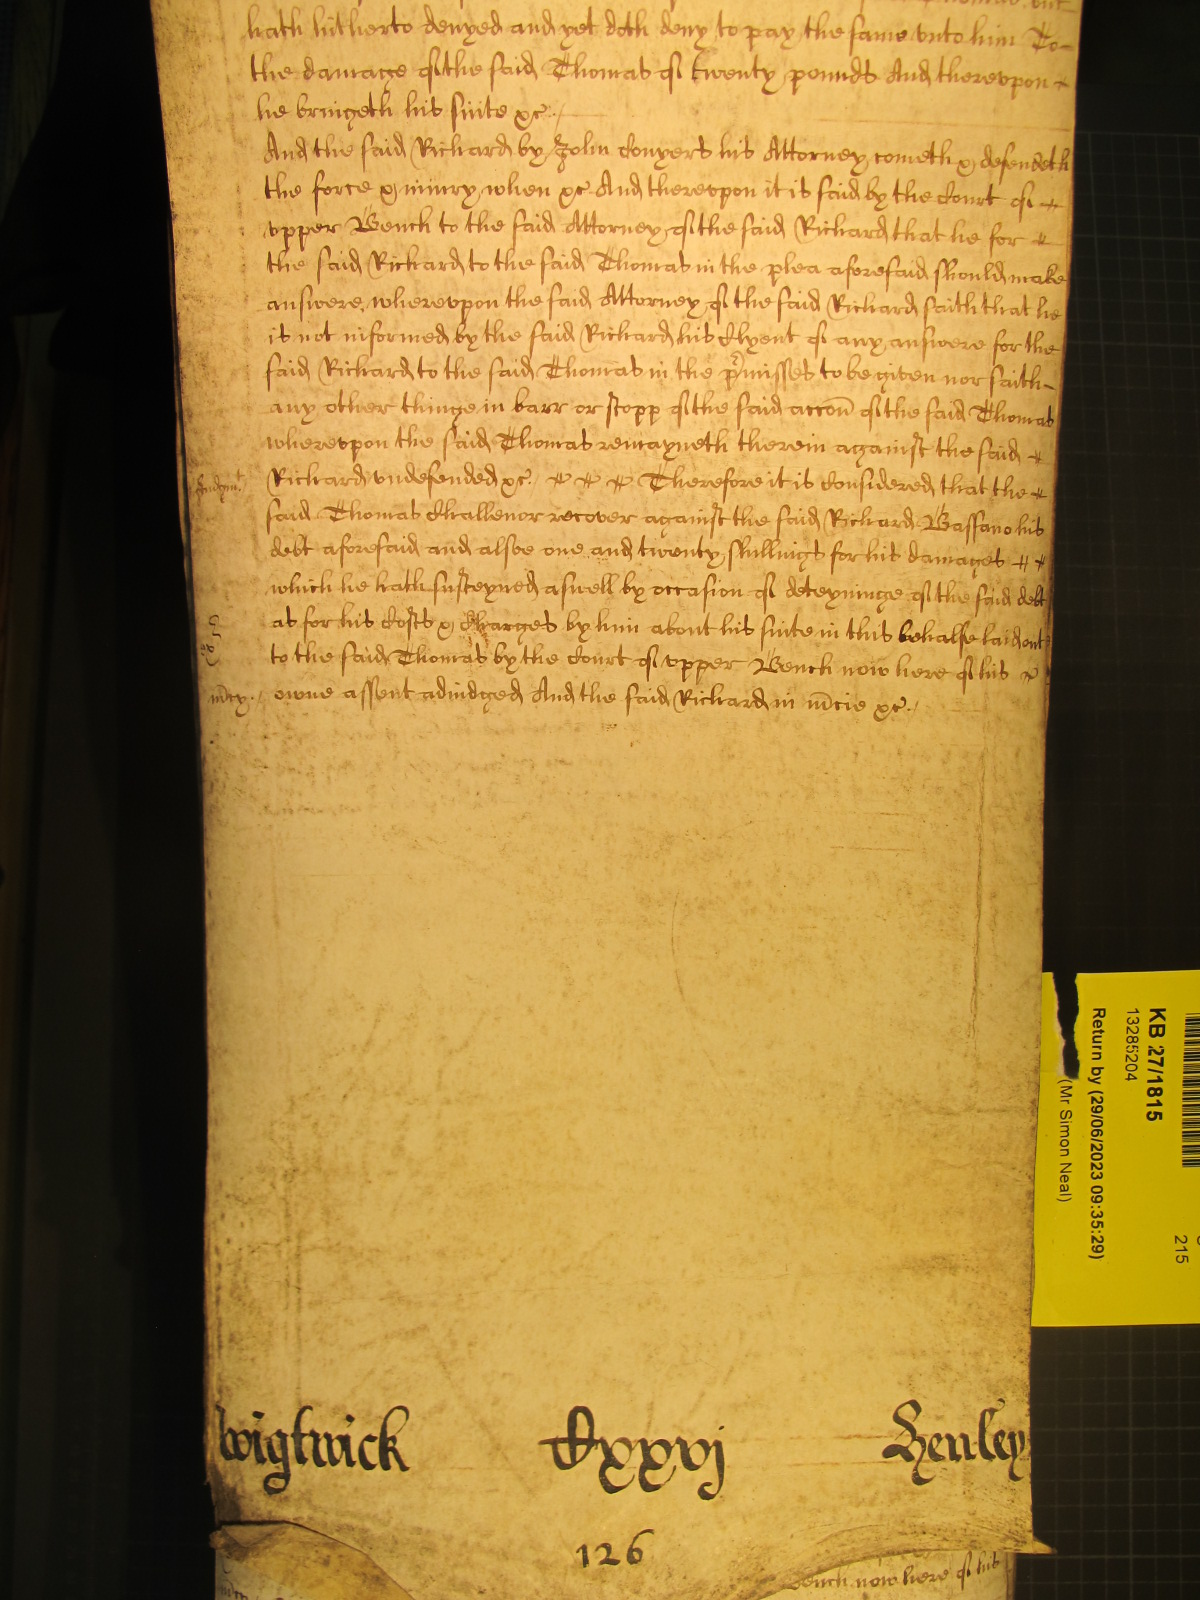 hath hitherto denyed and yet doth deny to pay the same vnto him To
the damage of the said Thomas of twenty pounds And therevpon
he bringeth his suite &c
And the said Richard by John Conyers his Attorney cometh & defendeth
the force & iniury when &c And therevpon it is said by the Court of
vpper Bench to the said Attorney of the said Richard that he for
the said Richard to the said Thomas in the plea aforesaid should make
answere, wherevpon the said Attorney of the said Richard saith that he
is not informed by the said Richard his Clyent of any answere for the
said Richard to the said Thomas in the p'misses to be given nor saith
any other thinge in barr or stopp of the said accon of the said Thomas
wherevpon the said Thomas remayneth therein against the said
Judgmt
Richard vndefended &c Therefore it is Considered that the
said Thomas Challenor recover against the said Richard Bassano his
debt aforesaid and alsoe one and twenty shillings for his damages
which he hath susteyned aswell by occasion of deteyninge of the said debt
as for his Costs & Charges by him about his suite in this behalfe laid out
to the said Thomas by the Court of vpper Bench now here of his
mcy
owne assent adiudged And the said Richard in mcie &c
wigtwick Cxxvj Henley
126
Bench now here of his
KB 27/1815
13285204
Return by (29/06/2023 09:35:29)
(Mr Simon Neal)
215